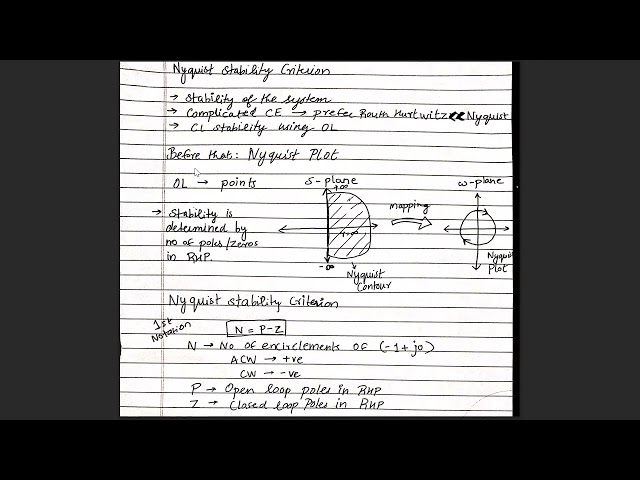 Nyquist Stability Criterion
→ Stability of the system
→ Complicated CE → prefer Routh Hurtwitz << Nyquist
→ CL stability using OL
Before that: Nyquist Plot
OL → points
s-plane
+∞
-∞
Nyquist
Contour
Mapping
ω-plane
Nyquist
Plot
→ Stability is
determined by
no of poles/zeros
in RHP.
Nyquist Stability Criterion
1st
Notation
N = P-Z
N → No of encirclements of (-1+j0)
ACW → +ve
CW → -ve
P → Open loop poles in RHP
Z → Closed Loop Poles in RHP